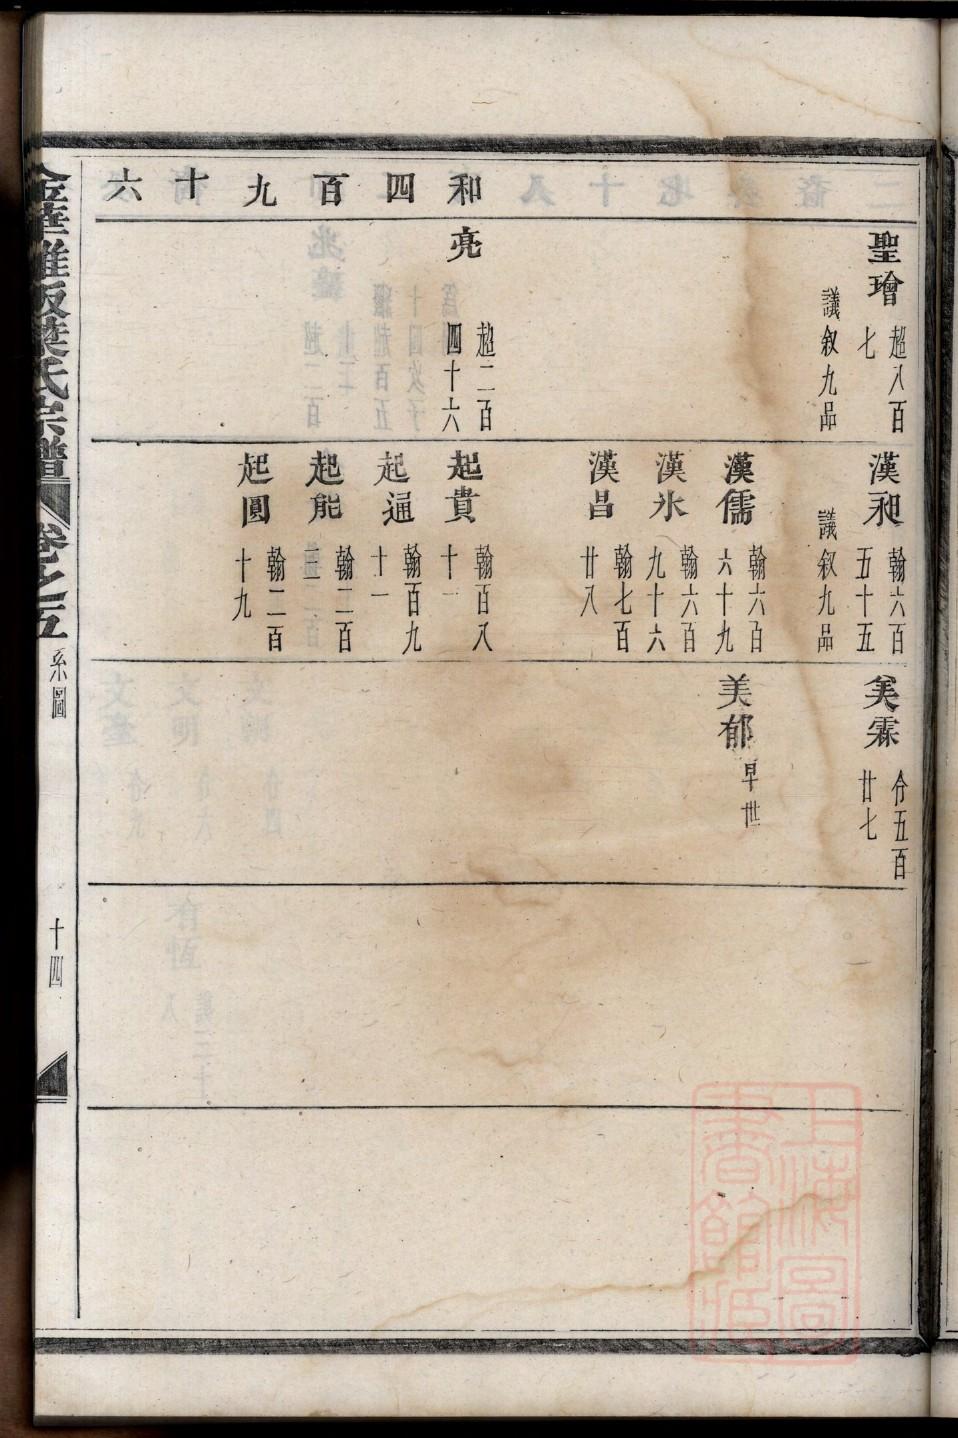 和四百九十六
聖璯 超八百七
議叙九品
亮 超二百四十六
漢昶 翰六百五十五
議叙九品
漢儒 翰六百六十九
漢氷 翰六百九十六
漢昌 翰七百廿八
起貴 翰百八十一
起通 翰百九十一
起能 翰二百三
起圓 翰二百十九
美霖 分五百廿七
美郁 早世
金華雅畈葉氏宗譜 卷之五 系圖 十四
上海圖書館藏